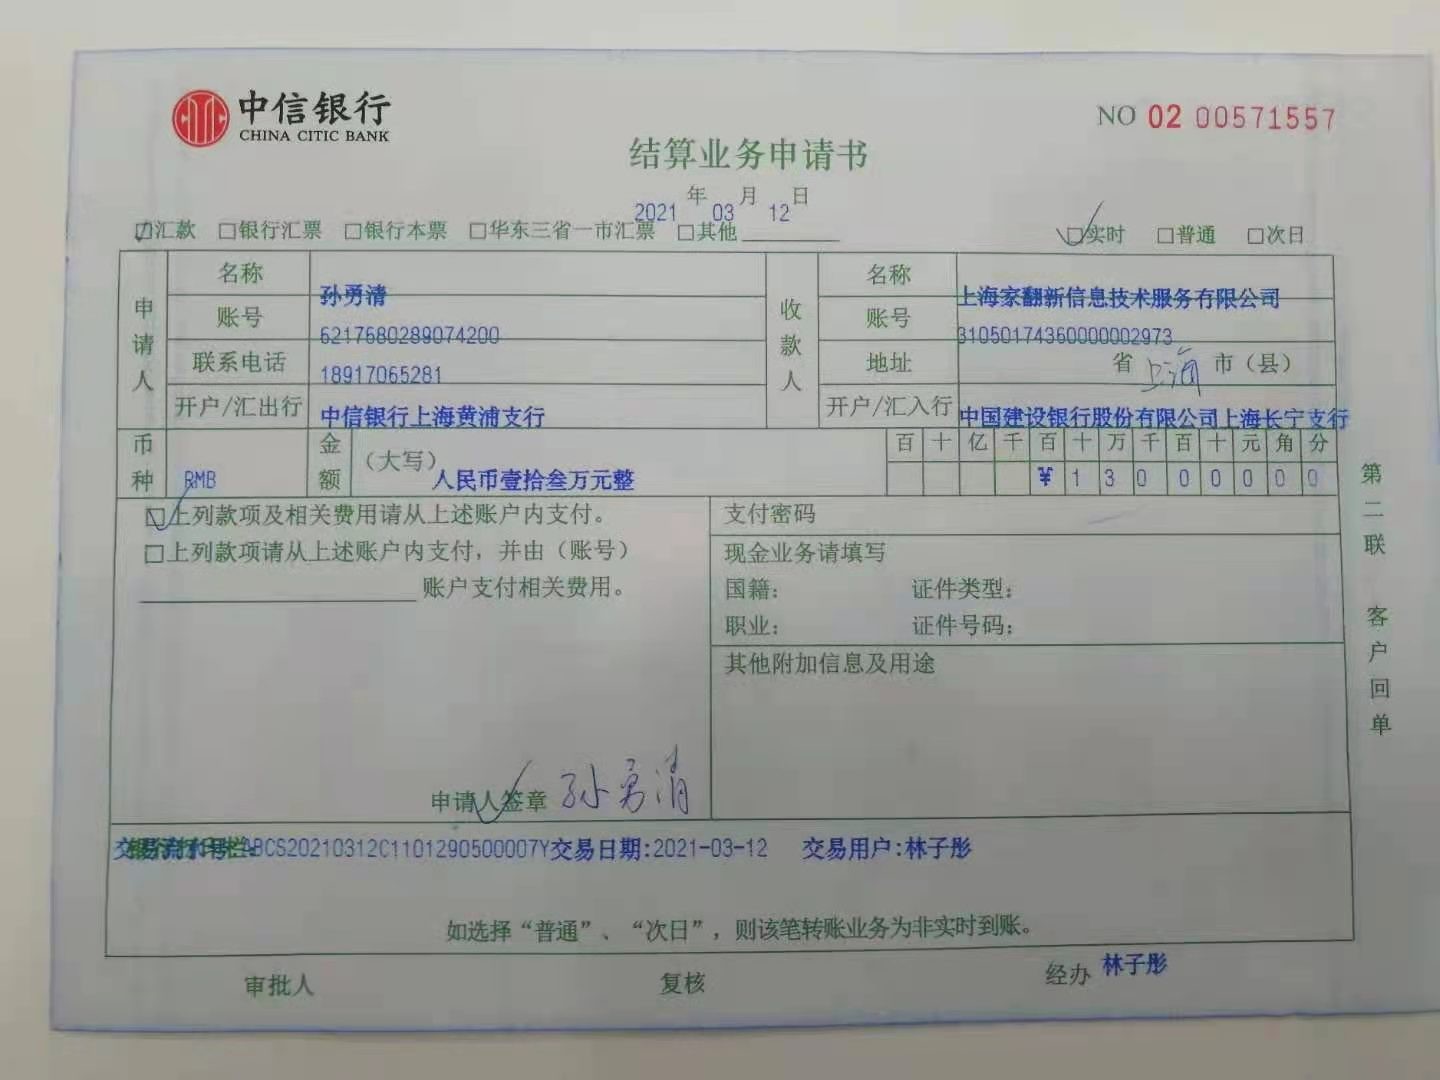 中信银行
CHINA CITIC BANK
NO 02 00571557
结算业务申请书
2021年03月12日
☑汇款 □银行汇票 □银行本票 □华东三省一市汇票 □其他
☑实时 □普通 □次日
申请人
名称 孙勇清
账号 6217680289074200
联系电话 18917065281
开户/汇出行 中信银行上海黄浦支行
收款人
名称 上海家翻新信息技术服务有限公司
账号 31050174360000002973
地址 省 上海 市（县）
开户/汇入行 中国建设银行股份有限公司上海长宁支行
币种 RMB
金额 （大写） 人民币壹拾叁万元整
百 十 亿 千 百 十 万 千 百 十 元 角 分
¥ 1 3 0 0 0 0 0 0
☑上列款项及相关费用请从上述账户内支付。
□上列款项请从上述账户内支付，并由（账号）
账户支付相关费用。
申请人签章 孙勇清
支付密码
现金业务请填写
国籍： 证件类型：
职业： 证件号码：
其他附加信息及用途
交易流水号:ABCS20210312C1101290500007Y交易日期:2021-03-12 交易用户:林子彤
如选择“普通”、“次日”，则该笔转账业务为非实时到账。
审批人 复核 经办 林子彤
第二联 客户回单